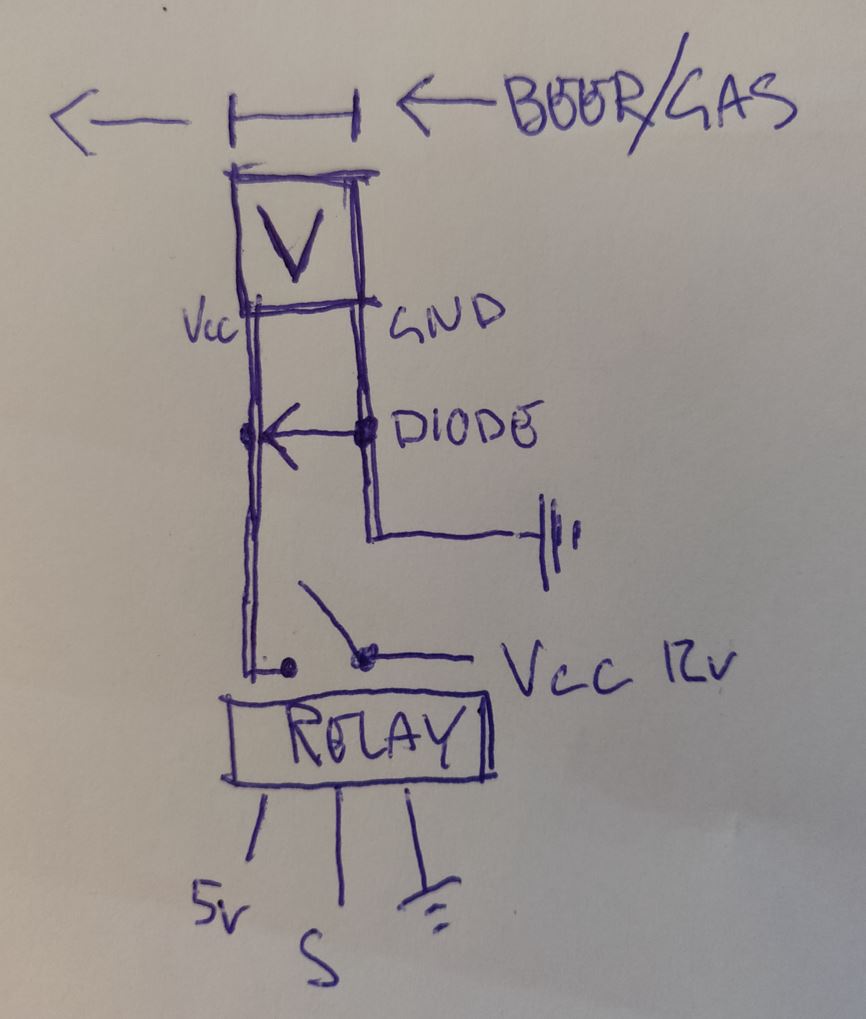 BEER/GAS
V
Vcc GND
DIODE
Vcc 12v
RELAY
5v
S